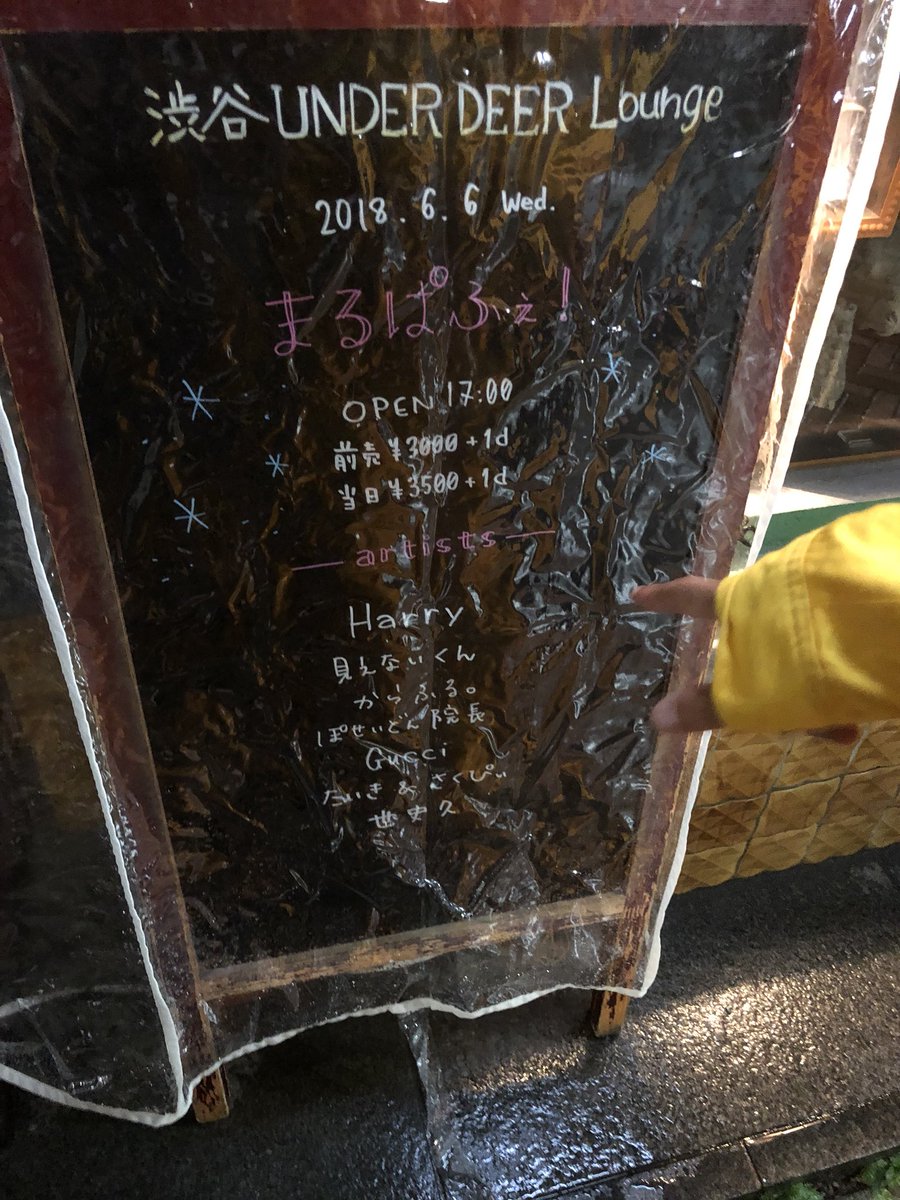 渋谷 UNDER DEER Lounge
2018.6.6 Wed.
まるぱふぇ!
OPEN 17:00
前売 ¥3000+1d
当日 ¥3500+1d
artists
Harry
見えないくん
からふる。
ぽせいどん院長
Gucci
たいき&さくぴぃ
世史久